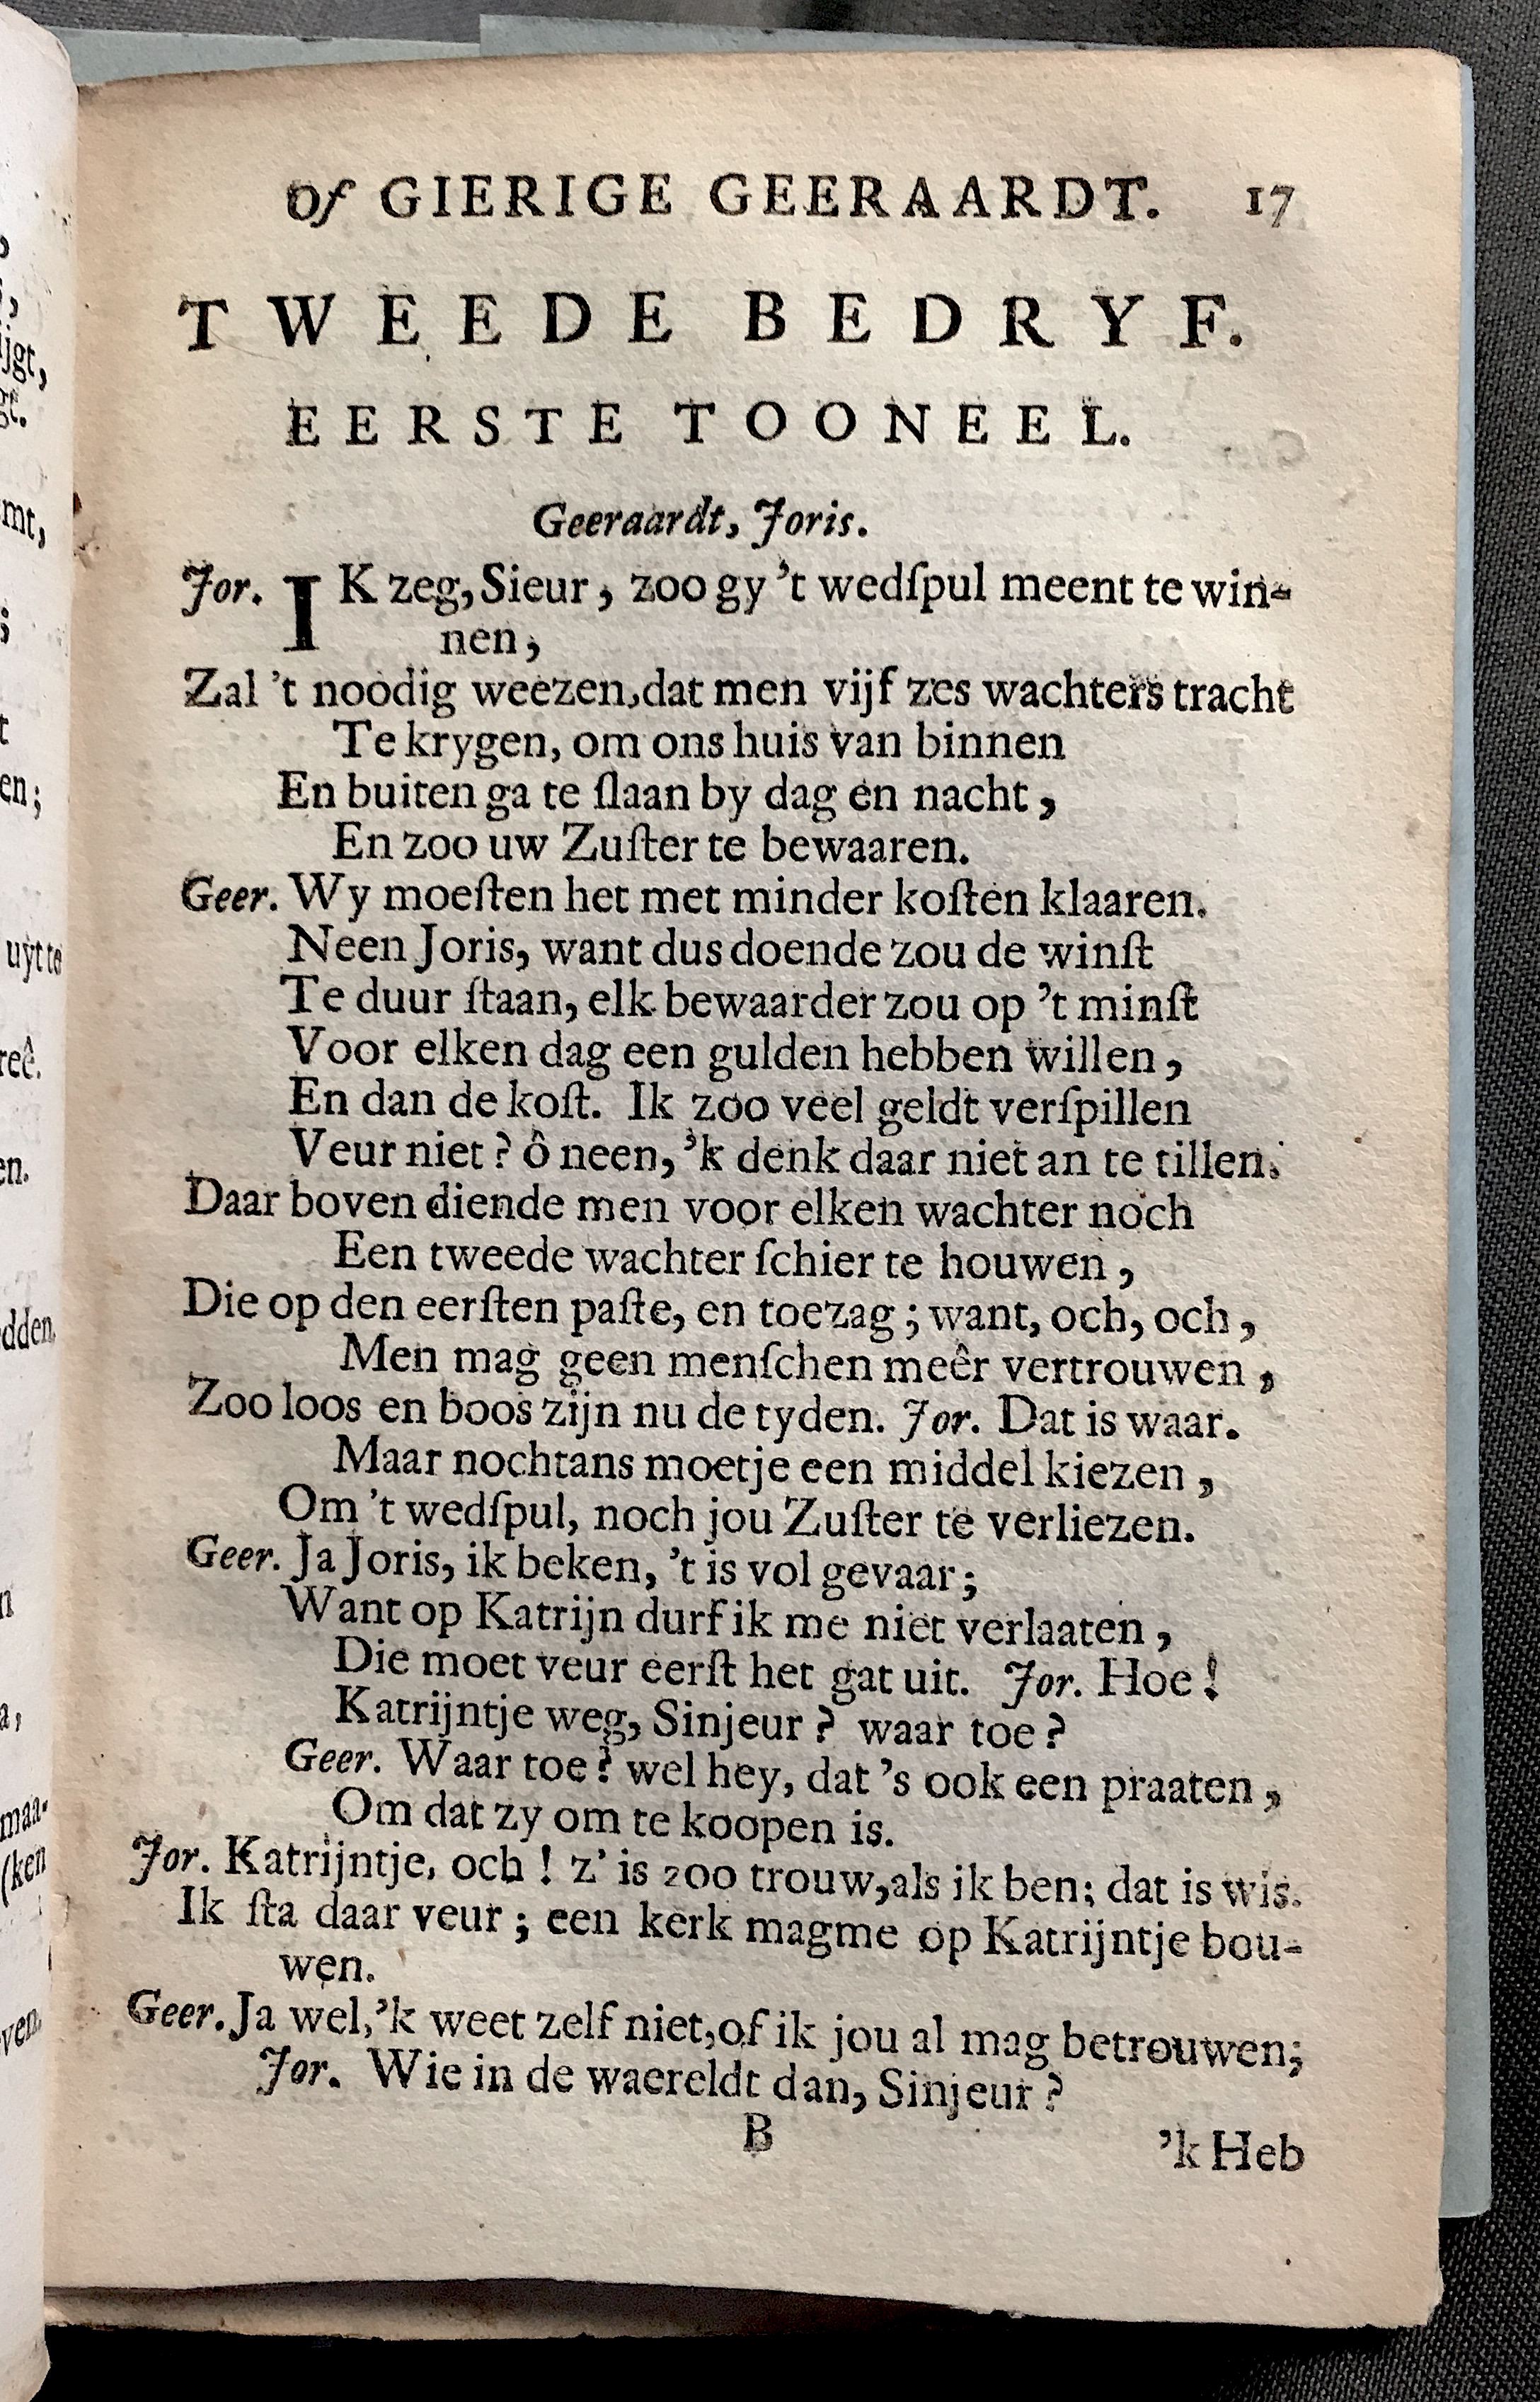 Of GIERIGE GEERAARDT. 17
TWEEDE BEDRYF.
EERSTE TOONEEL.
Geeraardt, Joris.
Jor. IK zeg, Sieur, zoo gy 't wedſpul meent te win-
nen,
Zal 't noodig weezen, dat men vijf zes wachters tracht
Te krygen, om ons huis van binnen
En buiten ga te ſlaan by dag en nacht,
En zoo uw Zuſter te bewaaren.
Geer. Wy moeſten het met minder koſten klaaren.
Neen Joris, want dus doende zou de winſt
Te duur ſtaan, elk bewaarder zou op 't minſt
Voor elken dag een gulden hebben willen,
En dan de koſt. Ik zoo veel geldt verſpillen
Veur niet? ô neen, 'k denk daar niet an te tillen.
Daar boven diende men voor elken wachter noch
Een tweede wachter ſchier te houwen,
Die op den eerſten paſte, en toezag; want, och, och,
Men mag geen menſchen meêr vertrouwen,
Zoo loos en boos zijn nu de tyden. Jor. Dat is waar.
Maar nochtans moetje een middel kiezen,
Om 't wedſpul, noch jou Zuſter te verliezen.
Geer. Ja Joris, ik beken, 't is vol gevaar;
Want op Katrijn durf ik me niet verlaaten,
Die moet veur eerſt het gat uit. Jor. Hoe!
Katrijntje weg, Sinjeur? waar toe?
Geer. Waar toe? wel hey, dat 's ook een praaten,
Om dat zy om te koopen is.
Jor. Katrijntje, och! z' is zoo trouw, als ik ben; dat is wis.
Ik ſta daar veur; een kerk magme op Katrijntje bou-
wen.
Geer. Ja wel, 'k weet zelf niet, of ik jou al mag betrouwen;
Jor. Wie in de waereldt dan, Sinjeur?
B
'k Heb